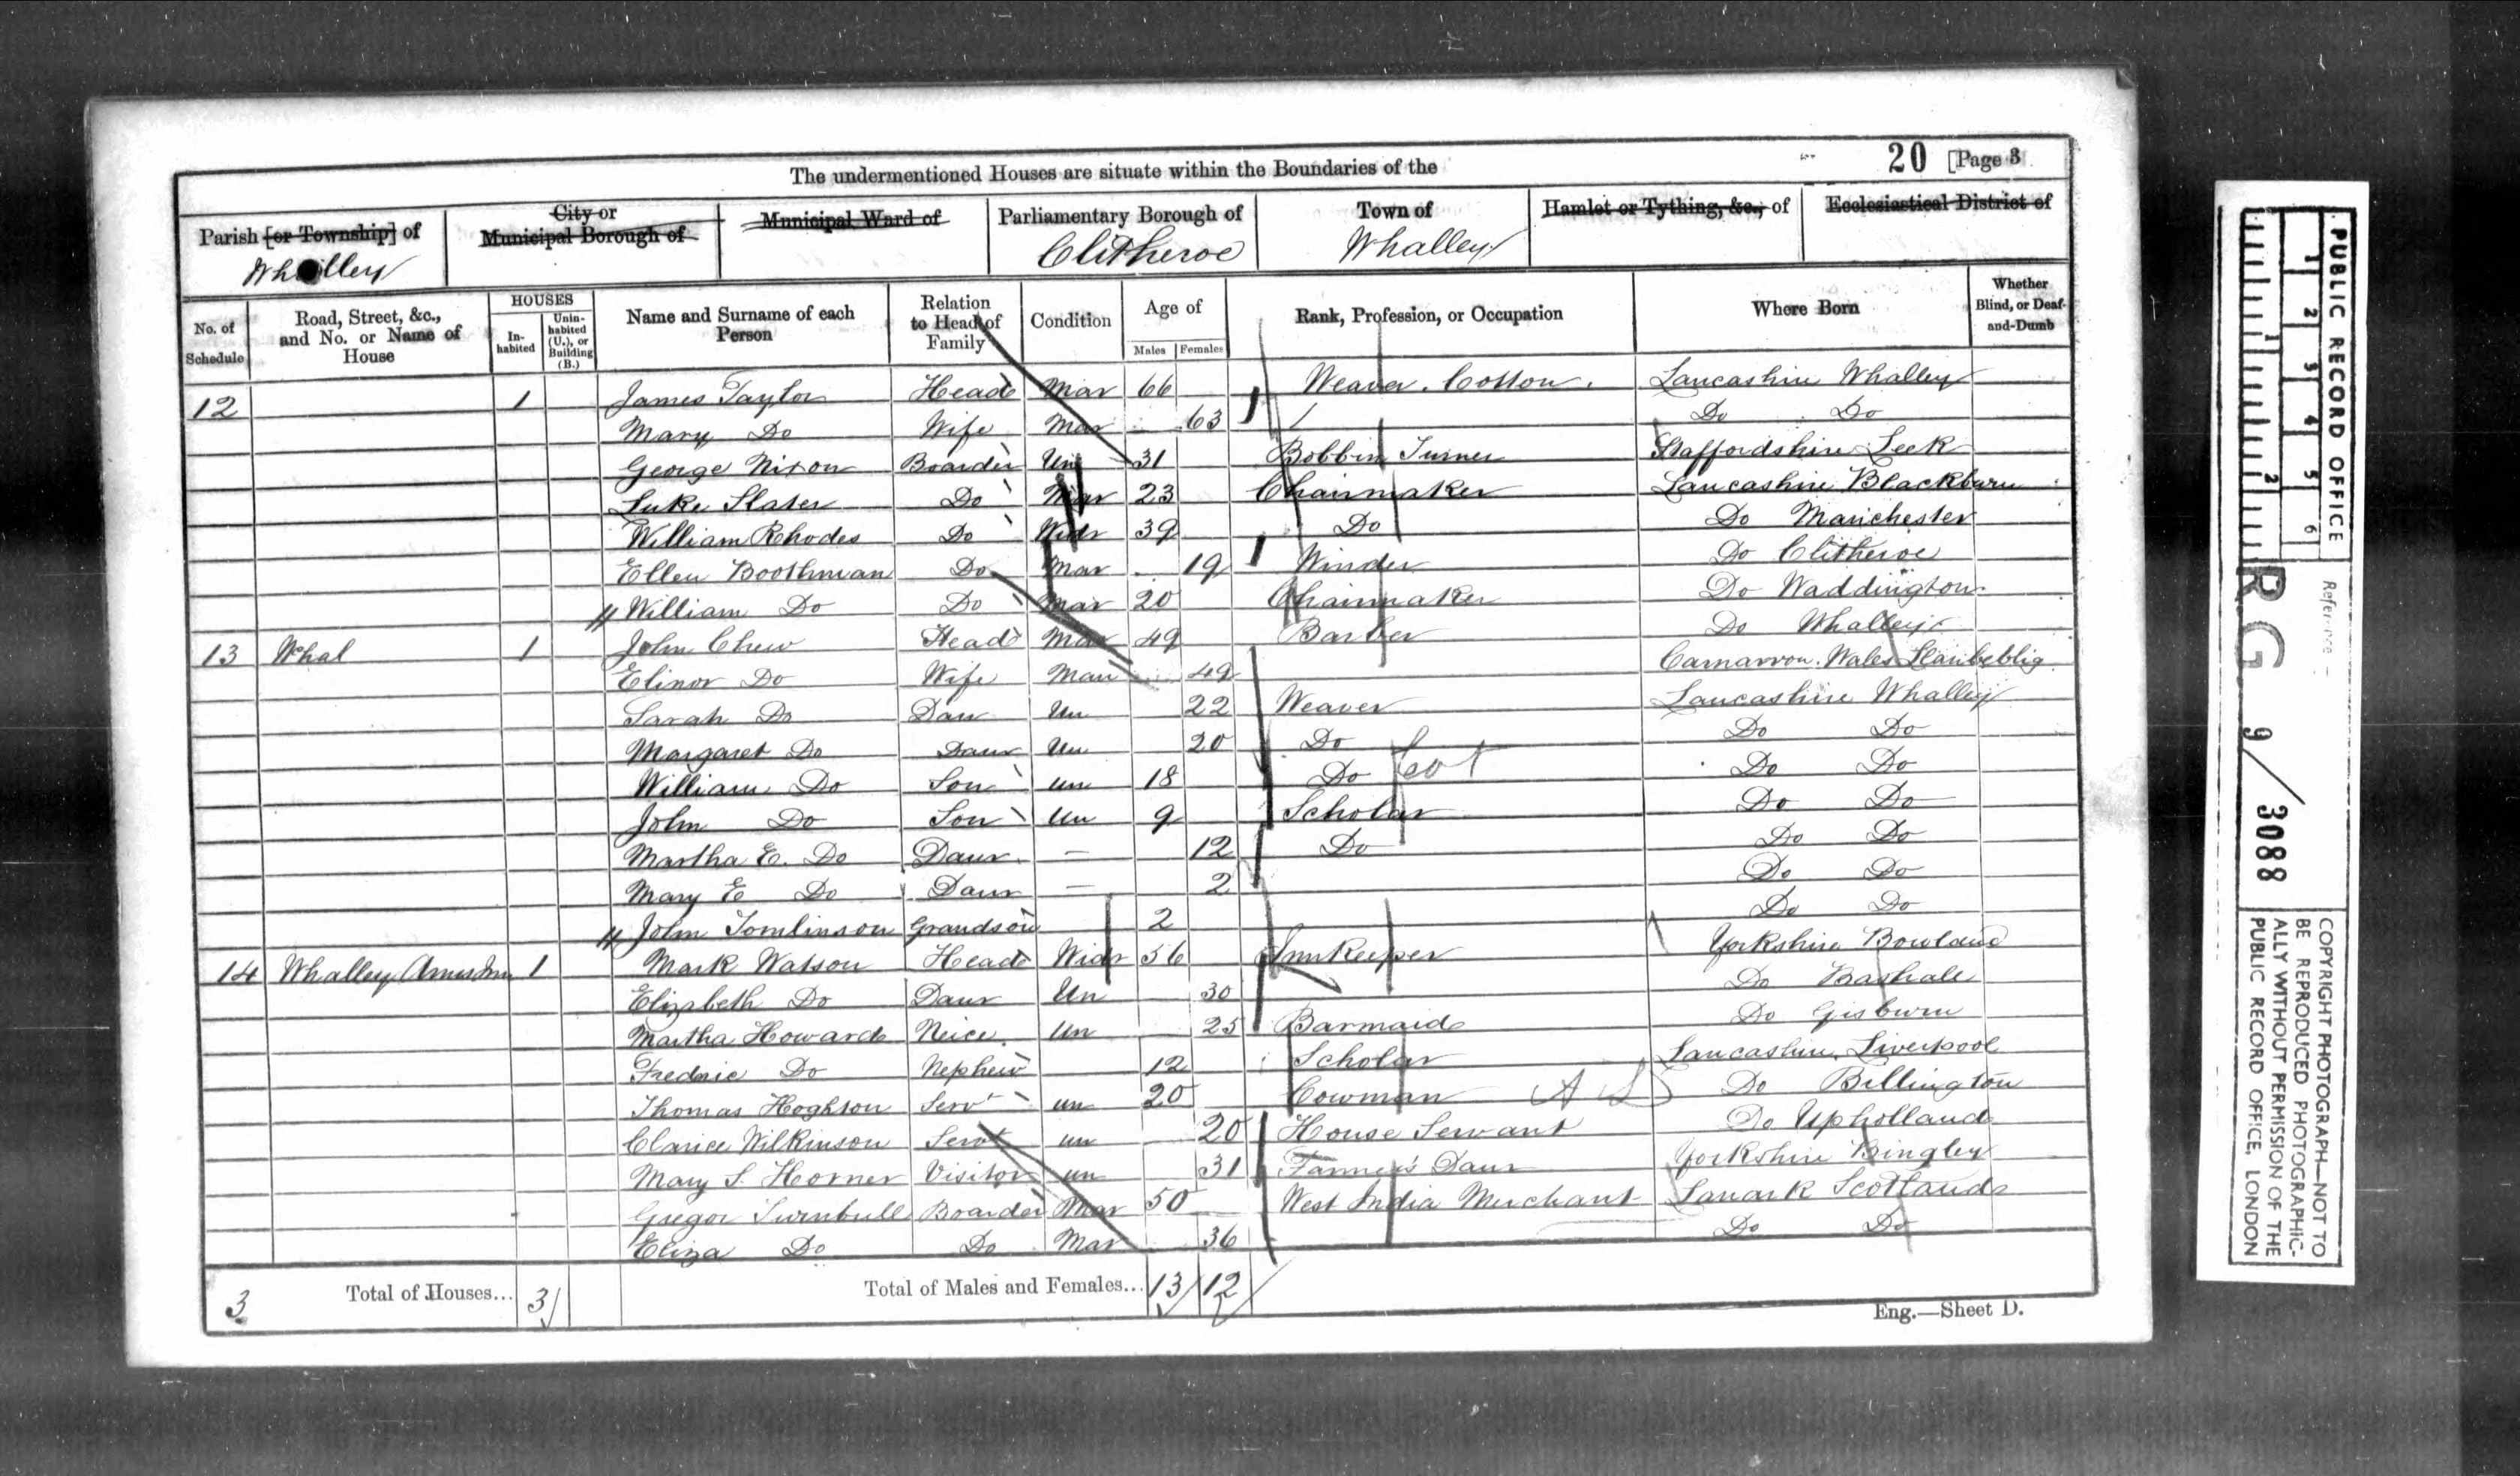 The undermentioned Houses are situate within the Boundaries of the 20 [Page 3
Parish [or Township] of Whalley
City or Municipal Borough of
Municipal Ward of
Parliamentary Borough of Clitheroe
Town of Whalley
Hamlet or Tything, &c., of
Ecclesiastical District of
No. of Schedule
Road, Street, &c., and No. or Name of House
HOUSES
Inhabited
Uninhabited (U.), or Building (B.)
Name and Surname of each Person
Relation to Head of Family
Condition
Age of
Males Females
Rank, Profession, or Occupation
Where Born
Whether Blind, or Deaf-and-Dumb
12 1 James Taylor Head Mar 66 Weaver. Cotton. Lancashire Whalley
Mary Do Wife Mar 63 Do Do
George Nixon Boarder Un 31 Bobbin Turner Staffordshire Leek
Luke Slater Do Mar 23 Chairmaker Lancashire Blackburn
William Rhodes Do Widr 39 Do Do Manchester
Ellen Boothman Do Mar 19 Winder Do Clitheroe
William Do Do Mar 20 Chairmaker Do Waddington
13 Whal 1 John Chew Head Mar 49 Barber Do Whalley
Elinor Do Wife Mar 49 Carnarvon. Wales Llanbeblig
Sarah Do Daur Un 22 Weaver Lancashire Whalley
Margaret Do Daur Un 20 Do Do Do
William Do Son un 18 Do Cot Do Do
John Do Son Un 9 Scholar Do Do
Martha E. Do Daur — 12 Do Do Do
Mary E Do Daur — 2 Do Do
John Tomlinson Grandson 2 Do Do
14 Whalley Arms Inn 1 Mark Watson Head Widr 56 Innkeeper Yorkshire Bowland
Elizabeth Do Daur Un 30 Do Bashall
Martha Howard Neice. Un 25 Barmaid Do Gisburn
Fredric Do Nephew 12 Scholar Lancashire. Liverpool
Thomas Hoghton Servt un 20 Cowman Do Billington
Clarice Wilkinson Servt un 20 House Servant Do Upholland
Mary S. Horner Visitor un 31 Farmer's Daur Yorkshire Bingley
Gregor Turnbull Boarder Mar 50 West India Merchant Lanark Scotland
Eliza Do Do Mar 36 Do Do
3 Total of Houses... 3 Total of Males and Females... 13 12
Eng.—Sheet D.
PUBLIC RECORD OFFICE
1 2 3 4 5 6
1 2
Reference -
RG 9/3088
COPYRIGHT PHOTOGRAPH—NOT TO
BE REPRODUCED PHOTOGRAPHIC-
ALLY WITHOUT PERMISSION OF THE
PUBLIC RECORD OFFICE, LONDON